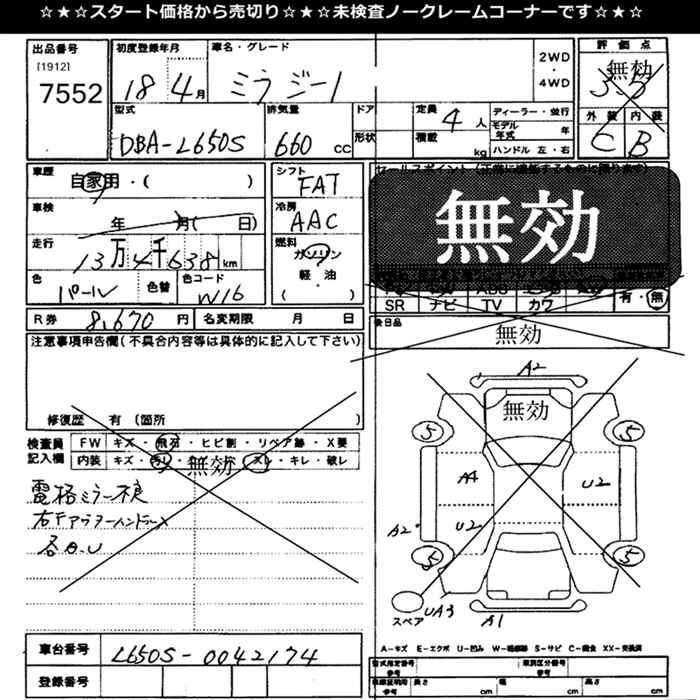 ☆★☆★スタート価格から売切り☆★☆★未検査ノークレームコーナーです☆★☆★
出品番号 初度登録年月 車名・グレード 2WD・4WD 評価点
[1912]
7552 18 4月 ミラ ジーノ 無効 3.5
型式 排気量 ドア形状 定員 4人 積載 kg ディーラー・並行 外装 内装
DBA-L650S 660 CC モデル年式 年 C B
ハンドル 左・右
車歴 自家用・( ) シフト FAT
車検 年 月( 日) 冷房 AAC
走行 13万4千638km 燃料 ガソリン
無効
色 パール 色替 色コード W16 軽・油 ( )
SR ナビ TV カワ 有・無
R券 8,670円 名変期限 月 日 後日品
無効
注意事項申告欄(不具合内容等は具体的に記入して下さい)
修復歴 有 (箇所 )
検査員記入欄 FW キズ・飛石・ヒビ割・リペア跡・X要
内装 キズ・ ・ ・スレ・キレ・破レ
無効
電格ミラー不良
右Fアウターハンドル×
各A.U
A2
無効
5 5
A4 U2
A2 U2
5 5
スペア UA3 A1
A-キズ E-エクボ U-凹み W-補修跡 S-サビ C-腐食 XX-交換済
車台番号 L650S-0042174
登録番号
型式指定番号 参考 類別区分番号 参考
車庫証明用 参考 長さ cm 幅 cm 高さ cm